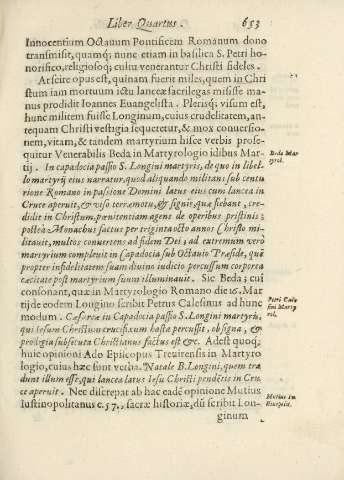 Liber Quartus. 653
Innocentium Octauum Pontificem Romanum dono
transmisit, quamq; nunc etiam in basilica S. Petri ho-
norifico, religiosoq; cultu venerantur Christi fideles.
At scire opus est, quinam fuerit miles, quem in Chri
stum iam mortuum ictu lanceæ sacrilegas misisse ma-
nus prodidit Ioannes Euangelista. Plerisq; visum est,
hunc militem fuisse Longinum, cuius crudelitatem, an-
tequam Christi vestigia sequeretur, & mox conuersio-
nem, vitam, & tandem martyrium hisce verbis prose-
quitur Venerabilis Beda in Martyrologio idibus Mar-
tij. In capadocia passio S. Longini martyris, de quo in libel-
lo martyrij eius narratur, quod aliquando militans sub centu
rione Romano in passione Domini latus eius cum lancea in
Cruce aperuit, & viso terræmotu, & signis, quæ fiebant, cre-
didit in Christum, pœnitentiam agens de operibus pristinis;
postea Monachus factus per triginta octo annos Christo mi-
litauit, multos conuertens ad fidem Dei; ad extremum verò
martyrium compleuit in Capadocia sub Octauio Præside, quē
propter infidelitatem suam diuino iudicio percussum corporea
cæcitate post martyrium suum illuminauit. Sic Beda; cui
consonant, quæ in Martyrologio Romano die 15. Mar
tij de eodem Longino scribit Petrus Calesinus ad hunc
modum. Cæsareæ in Capadocia passio S. Longini martyris,
qui Iesum Christum crucifixum hasta percussit, ob signa, &
prodigia subsecuta Christianus factus est &c. Adest quoq;
huic opinioni Ado Episcopus Treuirensis in Martyro
logio, cuius hæc sunt verba. Natale B. Longini, quem tra
dunt illum esse, qui lancea latus Iesu Christi pendētis in Cru
ce aperuit. Nec discrepat ab hac eadē opinione Mutius
Iustinopolitanus c. 57., sacræ historiæ, dū scribit Lon-
ginum
Beda Mar
tyrol.
Petri Cale
sini Marty
rol.
Mutius in